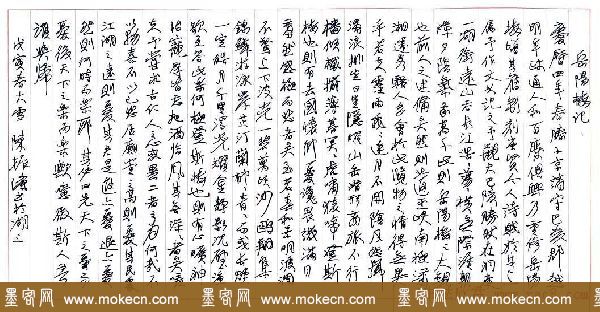 岳陽樓記
慶曆四年春滕子京謫守巴陵郡越
明年政通人和百廢俱興乃重修岳陽
樓增其舊制刻唐賢今人詩賦於其上
屬予作文以記之予觀夫巴陵勝狀在洞庭
一湖銜遠山吞長江浩浩湯湯橫無際涯朝
暉夕陰氣象萬千此則岳陽樓之大觀
也前人之述備矣然則北通巫峽南極瀟
湘遷客騷人多會於此覽物之情得無異
乎若夫霪雨霏霏連月不開陰風怒號
濁浪排空日星隱曜山岳潛形商旅不行
檣傾楫摧薄暮冥冥虎嘯猿啼登斯
樓也則有去國懷鄉憂讒畏譏滿目
蕭然感極而悲者矣至若春和景明波瀾
不驚上下天光一碧萬頃沙鷗翔集
錦鱗游泳岸芷汀蘭郁郁青青而或長煙
一空皓月千里浮光躍金靜影沉璧漁
歌互答此樂何極登斯樓也則有心曠神
怡寵辱皆忘把酒臨風其喜洋洋者矣嗟
夫予嘗求古仁人之心或異二者之為何哉不
以物喜不以己悲居廟堂之高則憂其民處
江湖之遠則憂其君是進亦憂退亦憂
然則何時而樂耶其必曰先天下之憂而
憂後天下之樂而樂歟噫微斯人吾
誰與歸
戊寅春大雪 陳振濂書於湖上
墨客网 www.mokecn.com 墨客网 www.mokecn.com 墨客网 www.mokecn.com